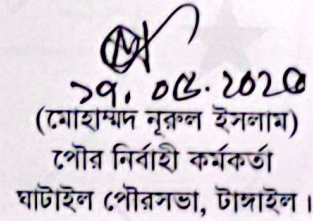 ১৭. ০৫. ২০২৩
(মোহাম্মদ নূরুল ইসলাম)
পৌর নির্বাহী কর্মকর্তা
ঘাটাইল পৌরসভা, টাঙ্গাইল।